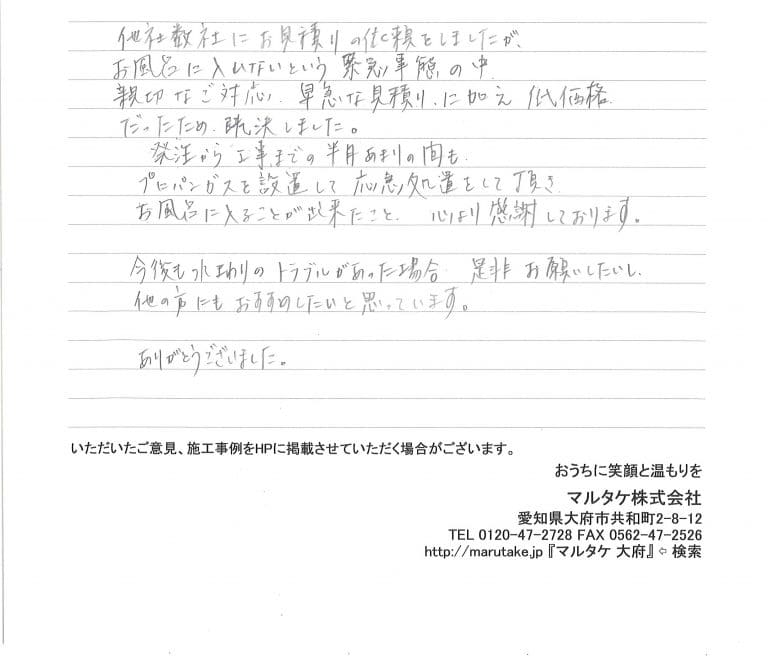 他社数社にお見積りの依頼をしましたが、
お風呂に入れないという緊急事態の中、
親切なご対応、早急な見積り、に加え低価格
だったため、即決しました。
発注から工事までの半月あまりの間も、
プロパンガスを設置して応急処置をして頂き、
お風呂に入ることが出来たこと、心より感謝しております。
今後も水まわりのトラブルがあった場合、是非お願いしたいし、
他の方にもおすすめしたいと思っています。
ありがとうございました。
いただいたご意見、施工事例をHPに掲載させていただく場合がございます。
おうちに笑顔と温もりを
マルタケ株式会社
愛知県大府市共和町2-8-12
TEL 0120-47-2728 FAX 0562-47-2526
http://marutake.jp 『マルタケ 大府』⇦ 検索